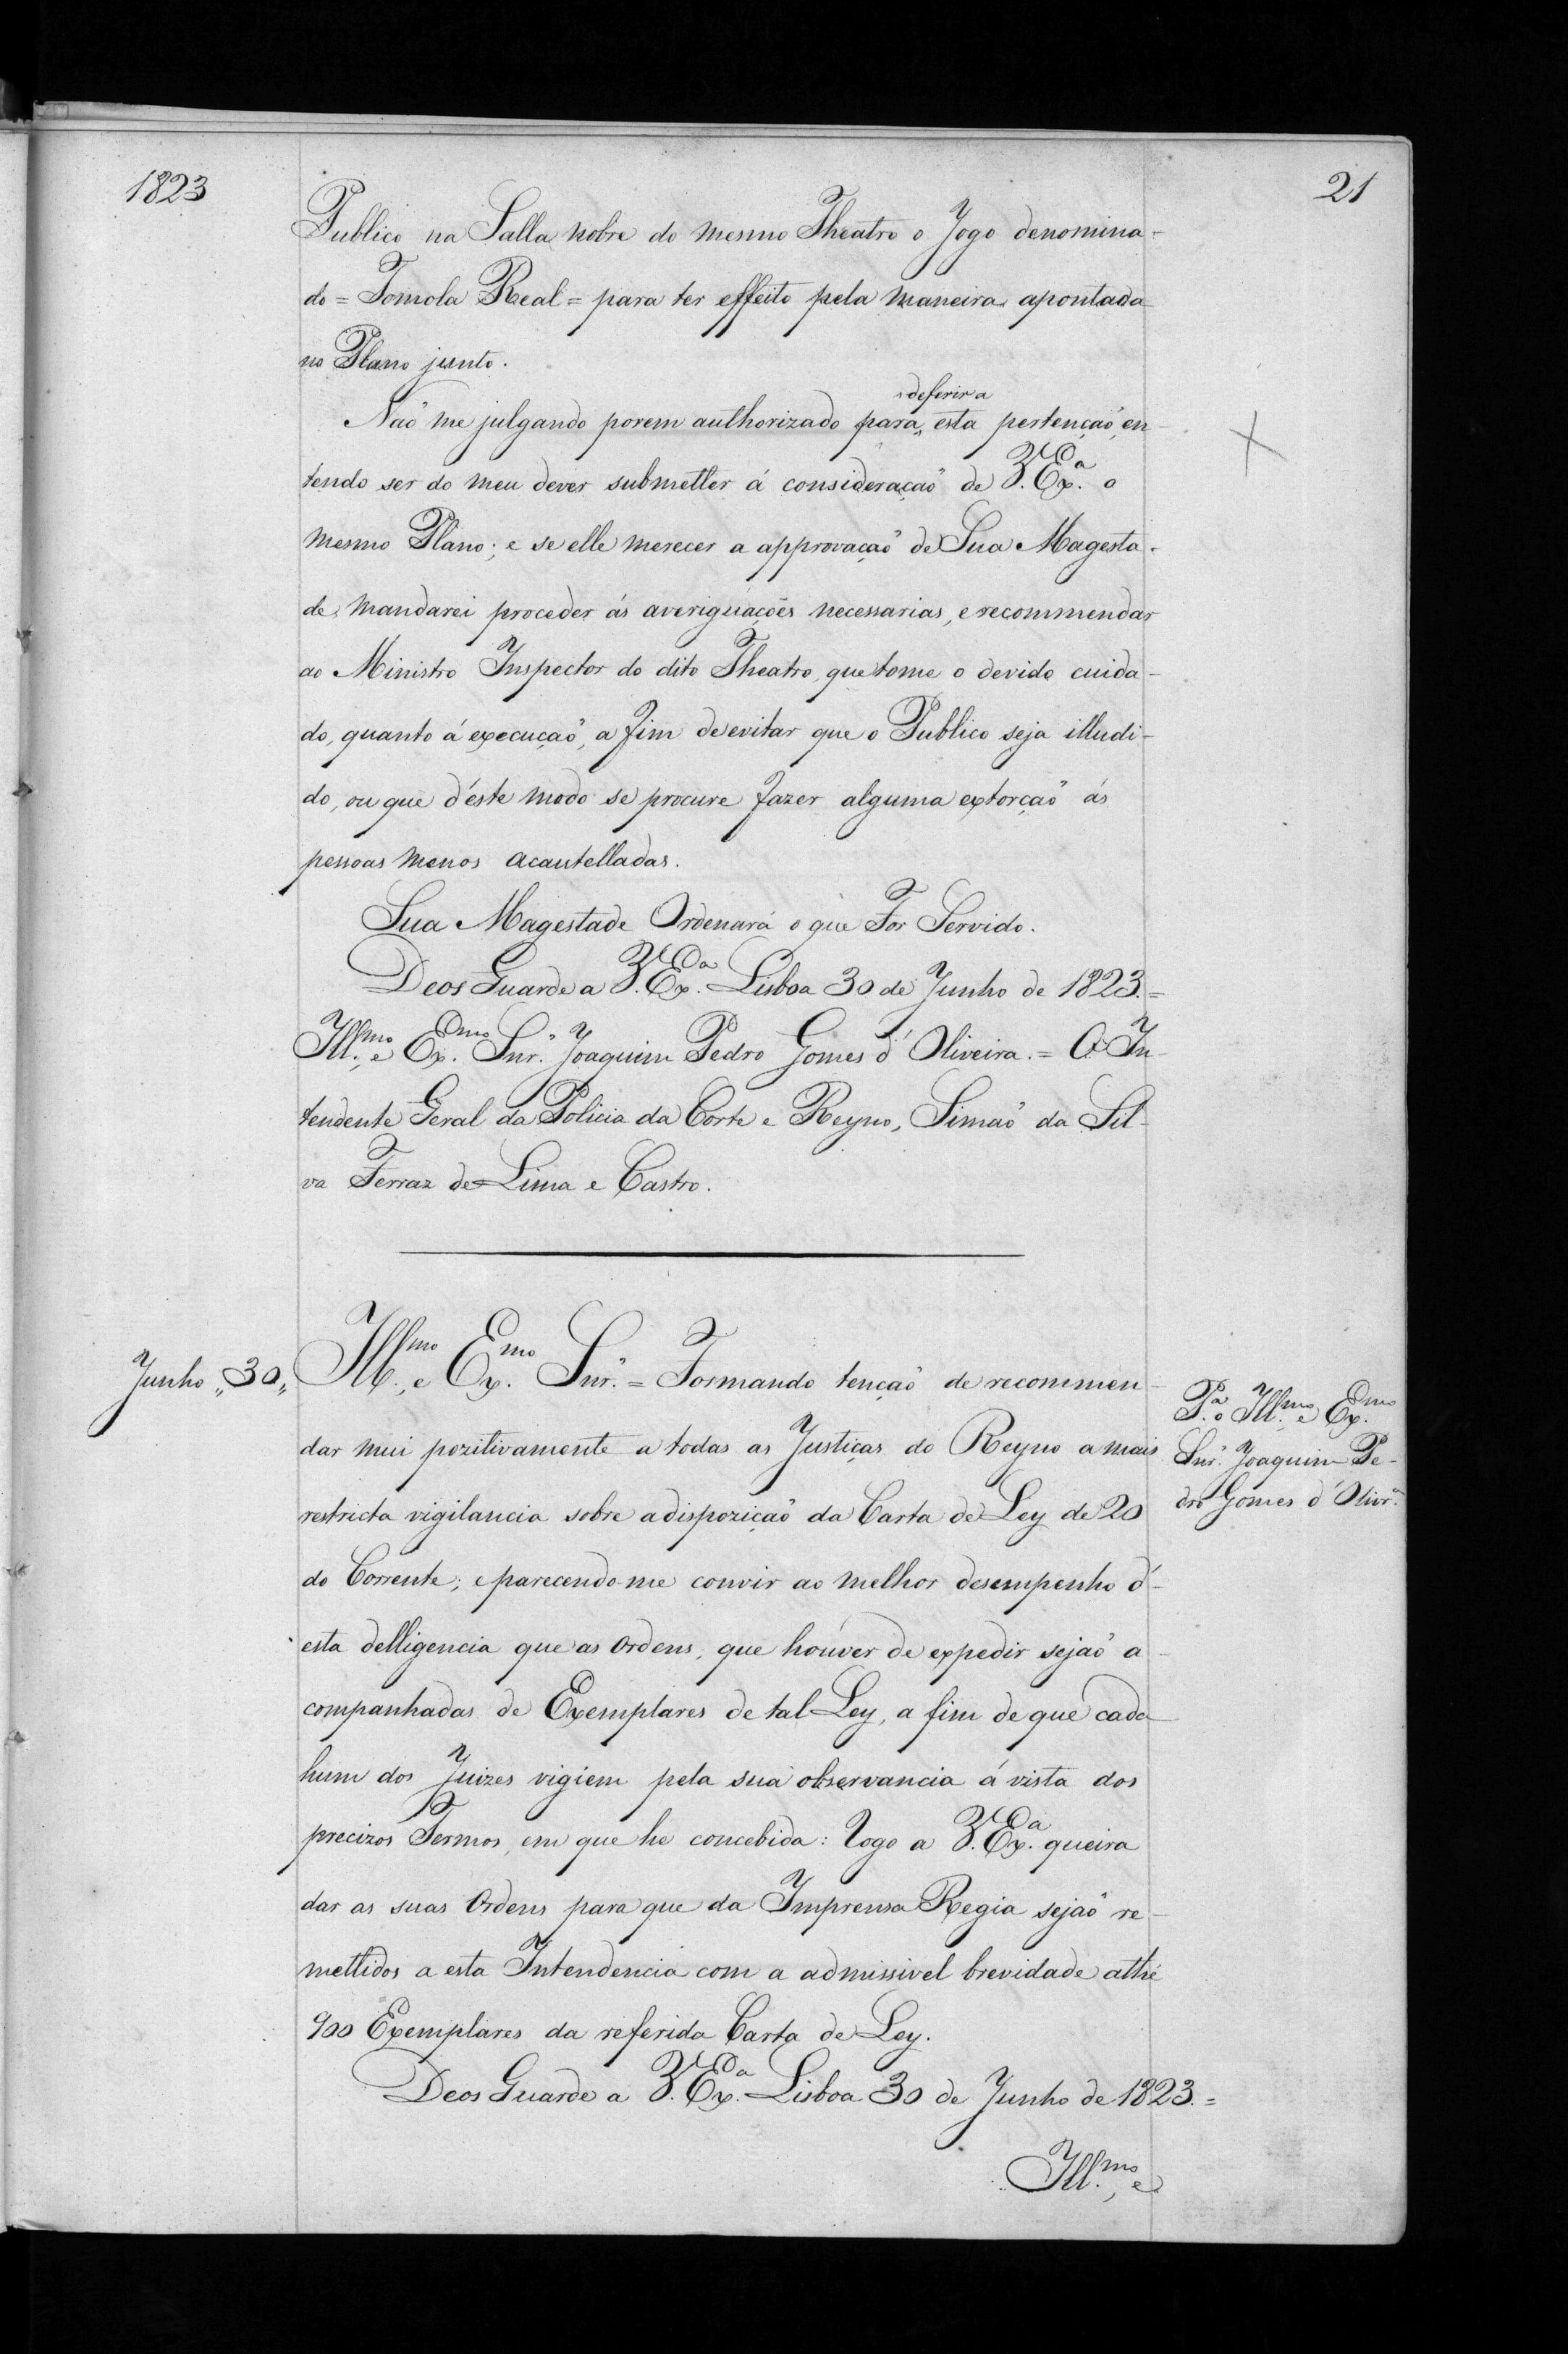 1823
21
Publico na Salla nobre do mesmo Theatro o Jogo denomina-
do = Tomola Real = para ter effeito pela maneira apontada
no Plano junto.
deferir a
Naõ me julgando porem authorizado para esta pertençaõ, en-
tendo ser do meu dever submetter á consideraçaõ de V. Ex.ª o
mesmo Plano; e se elle merecer a approvaçaõ de Sua Magesta-
de, mandarei proceder ás averiguações necessarias, e recommendar
ao Ministro Inspector do dito Theatro, que tome o devido cuida-
do, quanto á execuçaõ, a fim de evitar que o Publico seja illudi-
do, ou que d'éste modo se procure fazer alguma extorçaõ ás
pessoas menos acautelladas.
Sua Magestade Ordenará o que For Servido.
Deos Guarde a V. Ex.ª Lisboa 30 de Junho de 1823. =
Ill.mo, e Ex.mo Snr. Joaquim Pedro Gomes d'Oliveira. = O In-
tendente Geral da Policia da Corte e Reyno, Simaõ da Sil-
va Ferraz de Lima e Castro.
Junho „30„
Ill.mo, e Ex.mo Snr. = Formando tençaõ de recommen-
dar mui pozitivamente a todas as Justiças do Reyno a mais
restricta vigilancia sobre a dispoziçaõ da Carta de Ley de 20
do Corrente; e parecendo-me convir ao melhor desempenho d'-
esta delligencia que as Ordens, que houver de expedir sejaõ a-
companhadas de Exemplares de tal Ley, a fim de que cada
hum dos Juizes vigiem pela sua observancia á vista dos
precizos Termos, em que he concebida: Rogo a V. Ex.ª queira
dar as suas Ordens para que da Imprensa Regia sejaõ re-
mettidos a esta Intendencia com a admissivel brevidade athé
900 Exemplares da referida Carta de Ley.
Deos Guarde a V. Ex.ª Lisboa 30 de Junho de 1823. =
Ill.mo, e
P.ª o Ill.mo e Ex.mo
Snr. Joaquim Pe-
dro Gomes d'Olivr.ª